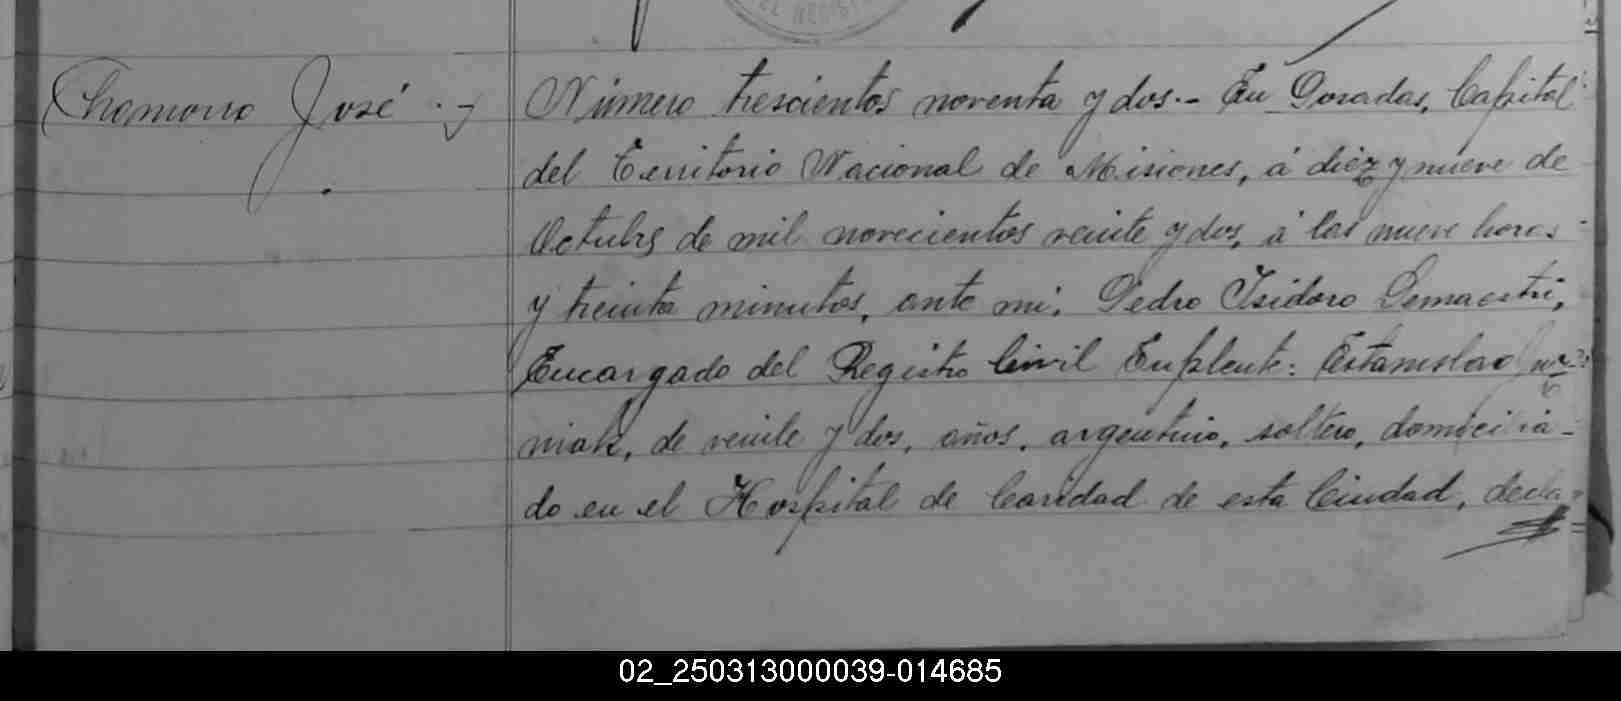 EL REGIST
Chamorro José.-
Número trescientos noventa y dos.- En Posadas, Capital
del Territorio Nacional de Misiones, á diez y nueve de
Octubre de mil novecientos veinte y dos, á las nueve horas
y treinta minutos, ante mi, Pedro Isidoro Lemaestri,
Encargado del Registro Civil Suplente: Estanislao
niak, de veinte y dos, años, argentino, soltero, domicilia-
do en el Hospital de Caridad de esta Ciudad, decla-
02_250313000039-014685